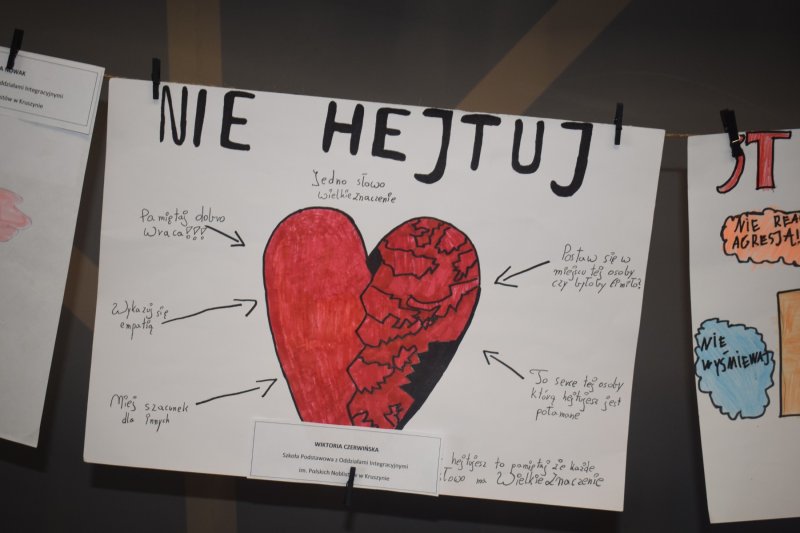 NOWAK
Oddziałami Integracyjnymi
w Kruszynie
NIE HEJTUJ
Jedno słowo
wielkie znaczenie
Pamiętaj dobro
wraca!!!
Wykazuj się
empatią
Miej szacunek
dla innych
Postaw się w
miejscu tej osoby
czy byłoby Ci miło?
To serce tej osoby
którą hejtujesz jest
połamane
hejtujesz to pamiętaj że każde
słowo ma Wielkie Znaczenie
WIKTORIA CZERWIŃSKA
Szkoła Podstawowa z Oddziałami Integracyjnymi
im. Polskich Noblistów w Kruszynie
ST
NIE REA
AGRESJA!
NIE
WYŚMIEWAJ